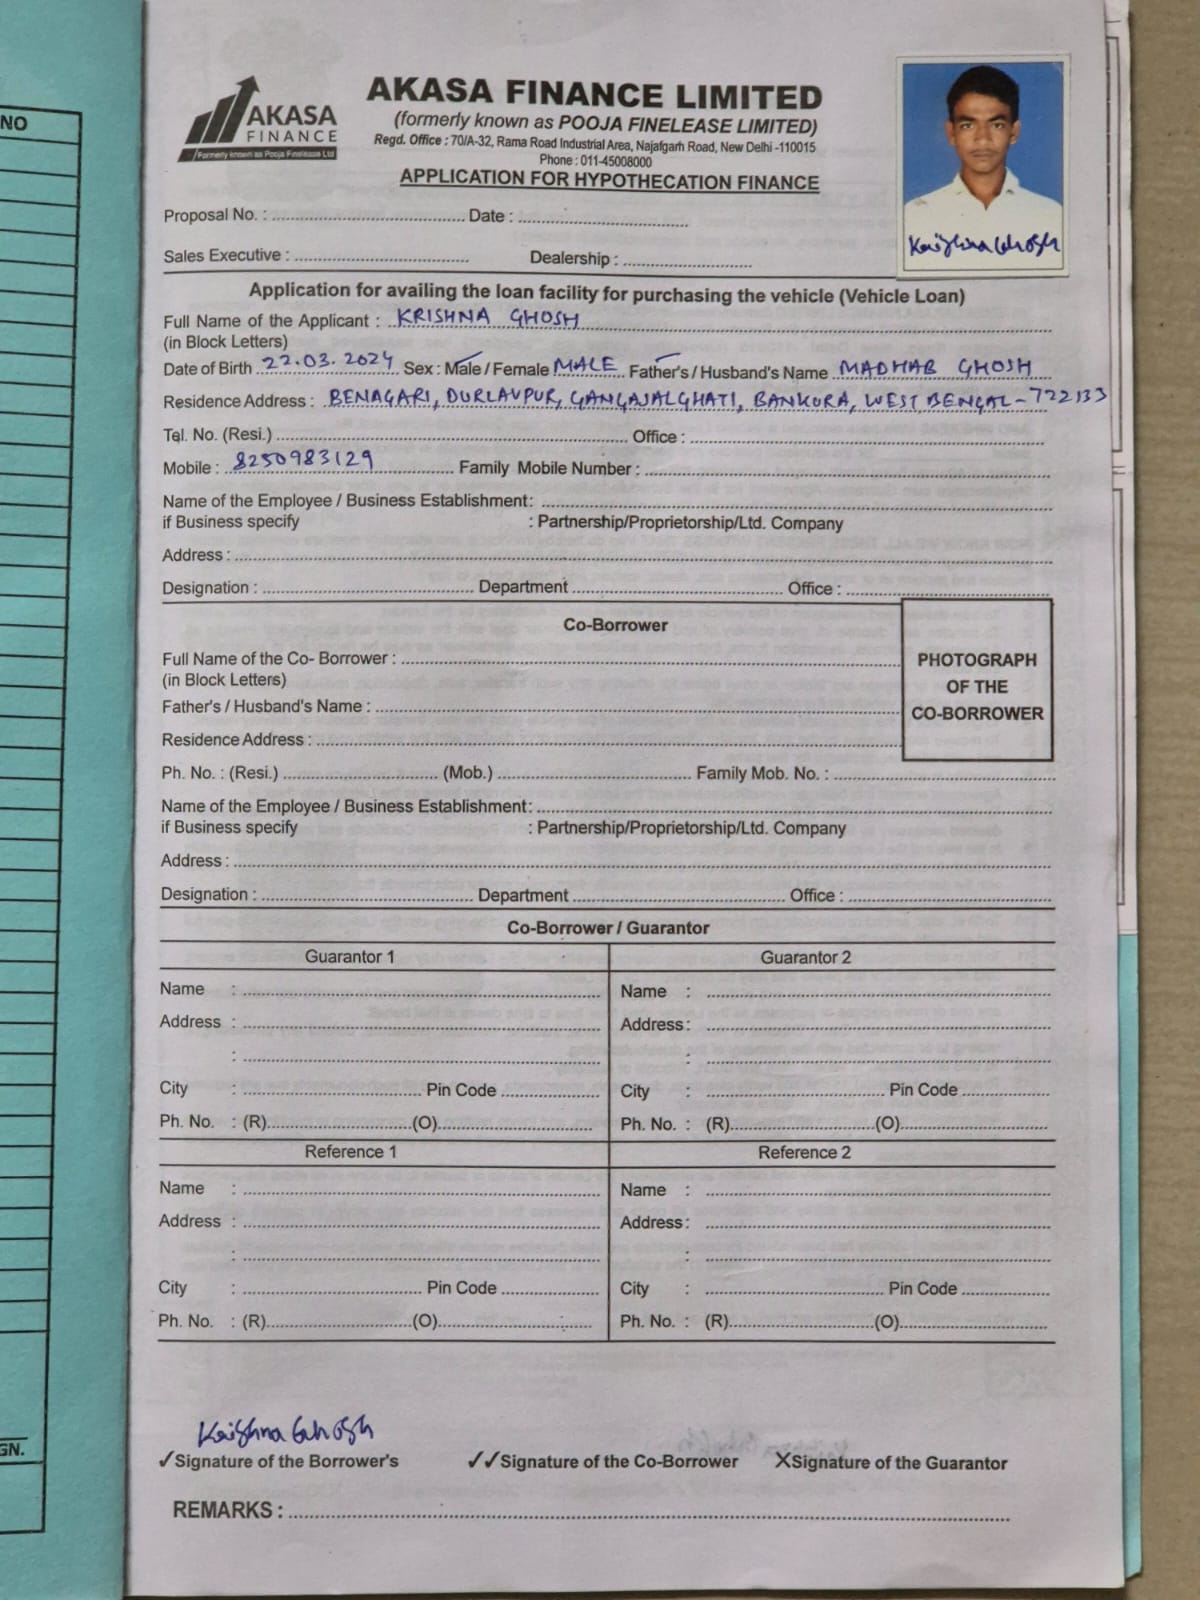 NO
AKASA
FINANCE
Formerly known as Pooja Finelease Ltd
AKASA FINANCE LIMITED
(formerly known as POOJA FINELEASE LIMITED)
Regd. Office : 70/A-32, Rama Road Industrial Area, Najafgarh Road, New Delhi -110015
Phone : 011-45008000
APPLICATION FOR HYPOTHECATION FINANCE
Proposal No. : Date :
Krishna Ghosh
Sales Executive : Dealership :
Application for availing the loan facility for purchasing the vehicle (Vehicle Loan)
Full Name of the Applicant : KRISHNA GHOSH
(in Block Letters)
Date of Birth 22.03.2024 Sex : Male / Female MALE Father's / Husband's Name MADHAB GHOSH
Residence Address : BENAGARI, DURLAVPUR, GANGAJALGHATI, BANKURA, WEST BENGAL - 722133
Tel. No. (Resi.) Office :
Mobile : 8250983129 Family Mobile Number :
Name of the Employee / Business Establishment:
if Business specify : Partnership/Proprietorship/Ltd. Company
Address :
Designation : Department Office :
Co-Borrower
Full Name of the Co- Borrower :
(in Block Letters)
Father's / Husband's Name :
Residence Address :
PHOTOGRAPH
OF THE
CO-BORROWER
Ph. No. : (Resi.) (Mob.) Family Mob. No. :
Name of the Employee / Business Establishment:
if Business specify : Partnership/Proprietorship/Ltd. Company
Address :
Designation : Department Office :
Co-Borrower / Guarantor
Guarantor 1 Guarantor 2
Name : Name :
Address : Address :
: :
City : Pin Code City : Pin Code
Ph. No. : (R) (O) Ph. No. : (R) (O)
Reference 1 Reference 2
Name : Name :
Address : Address :
: :
City : Pin Code City : Pin Code
Ph. No. : (R) (O) Ph. No. : (R) (O)
Krishna Ghosh
GN.
✓Signature of the Borrower's ✓✓Signature of the Co-Borrower XSignature of the Guarantor
REMARKS :